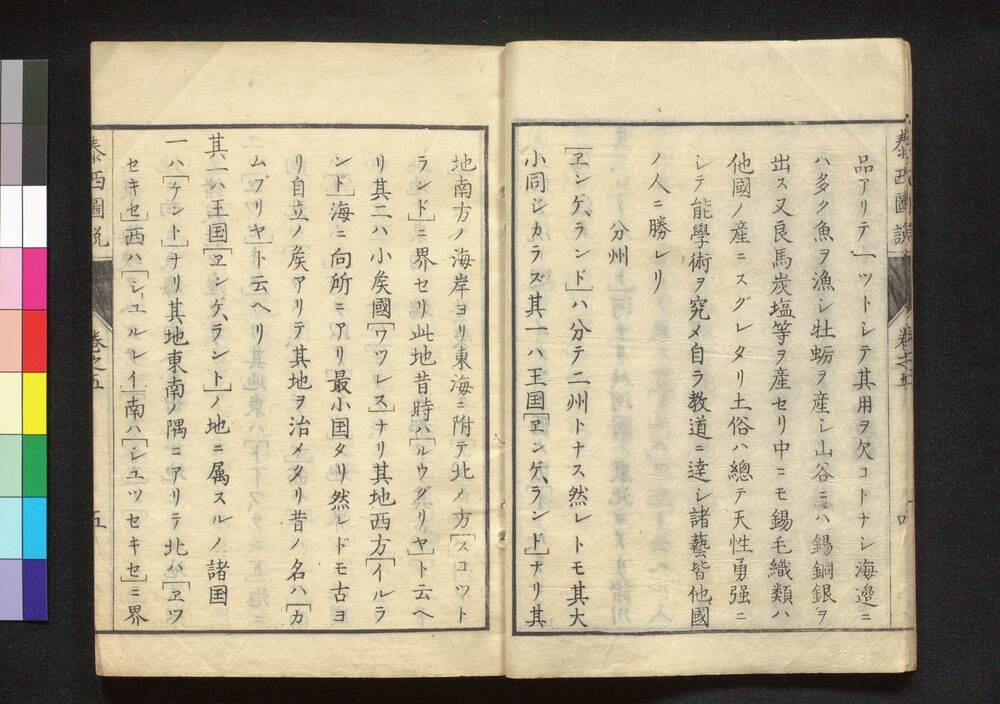 品アリテ一ツトシテ其用ヲ欠コトナシ海邊ニ
ハ多ク魚ヲ漁シ牡蛎ヲ産シ山谷ニハ錫銅銀ヲ
出ス又良馬炭塩等ヲ産セリ中ニモ錫毛織類ハ
他國ノ産ニスグレタリ土俗ハ總テ天性勇强ニ
シテ能學術ヲ究メ自ラ教道ニ達シ諸藝皆他國
ノ人ニ勝レリ
分州
[ヱンゲ、ランド]ハ分テ二州トナス然レトモ其大
小同ジカラズ其一ハ王国[ヱンゲ、ランド]ナリ其
地南方ノ海岸ヨリ東海ニ附テ北ノ方[スコツト
ランド]ニ界セリ此地昔時ハ[ルウグリヤ]ト云ヘ
リ其二ハ小矦國[ワツレス]ナリ其地西方[イルラ
ンド]海ニ向所ニアリ最小国タリ然レドモ古ヨ
リ自立ノ矦アリテ其地ヲ治メタリ昔ノ名ハ[カ
ムブリヤ]ト云ヘリ
其一ハ王国[ヱンゲ、ラント]ノ地ニ属スルノ諸国
一ハ[ケント]ナリ其地東南ノ隅ニアリテ北ハ[ヱツ
セキセ]西ハ[シユルレイ]南ハ[シユツセキセ]ニ界
泰西圖説
卷之五
五